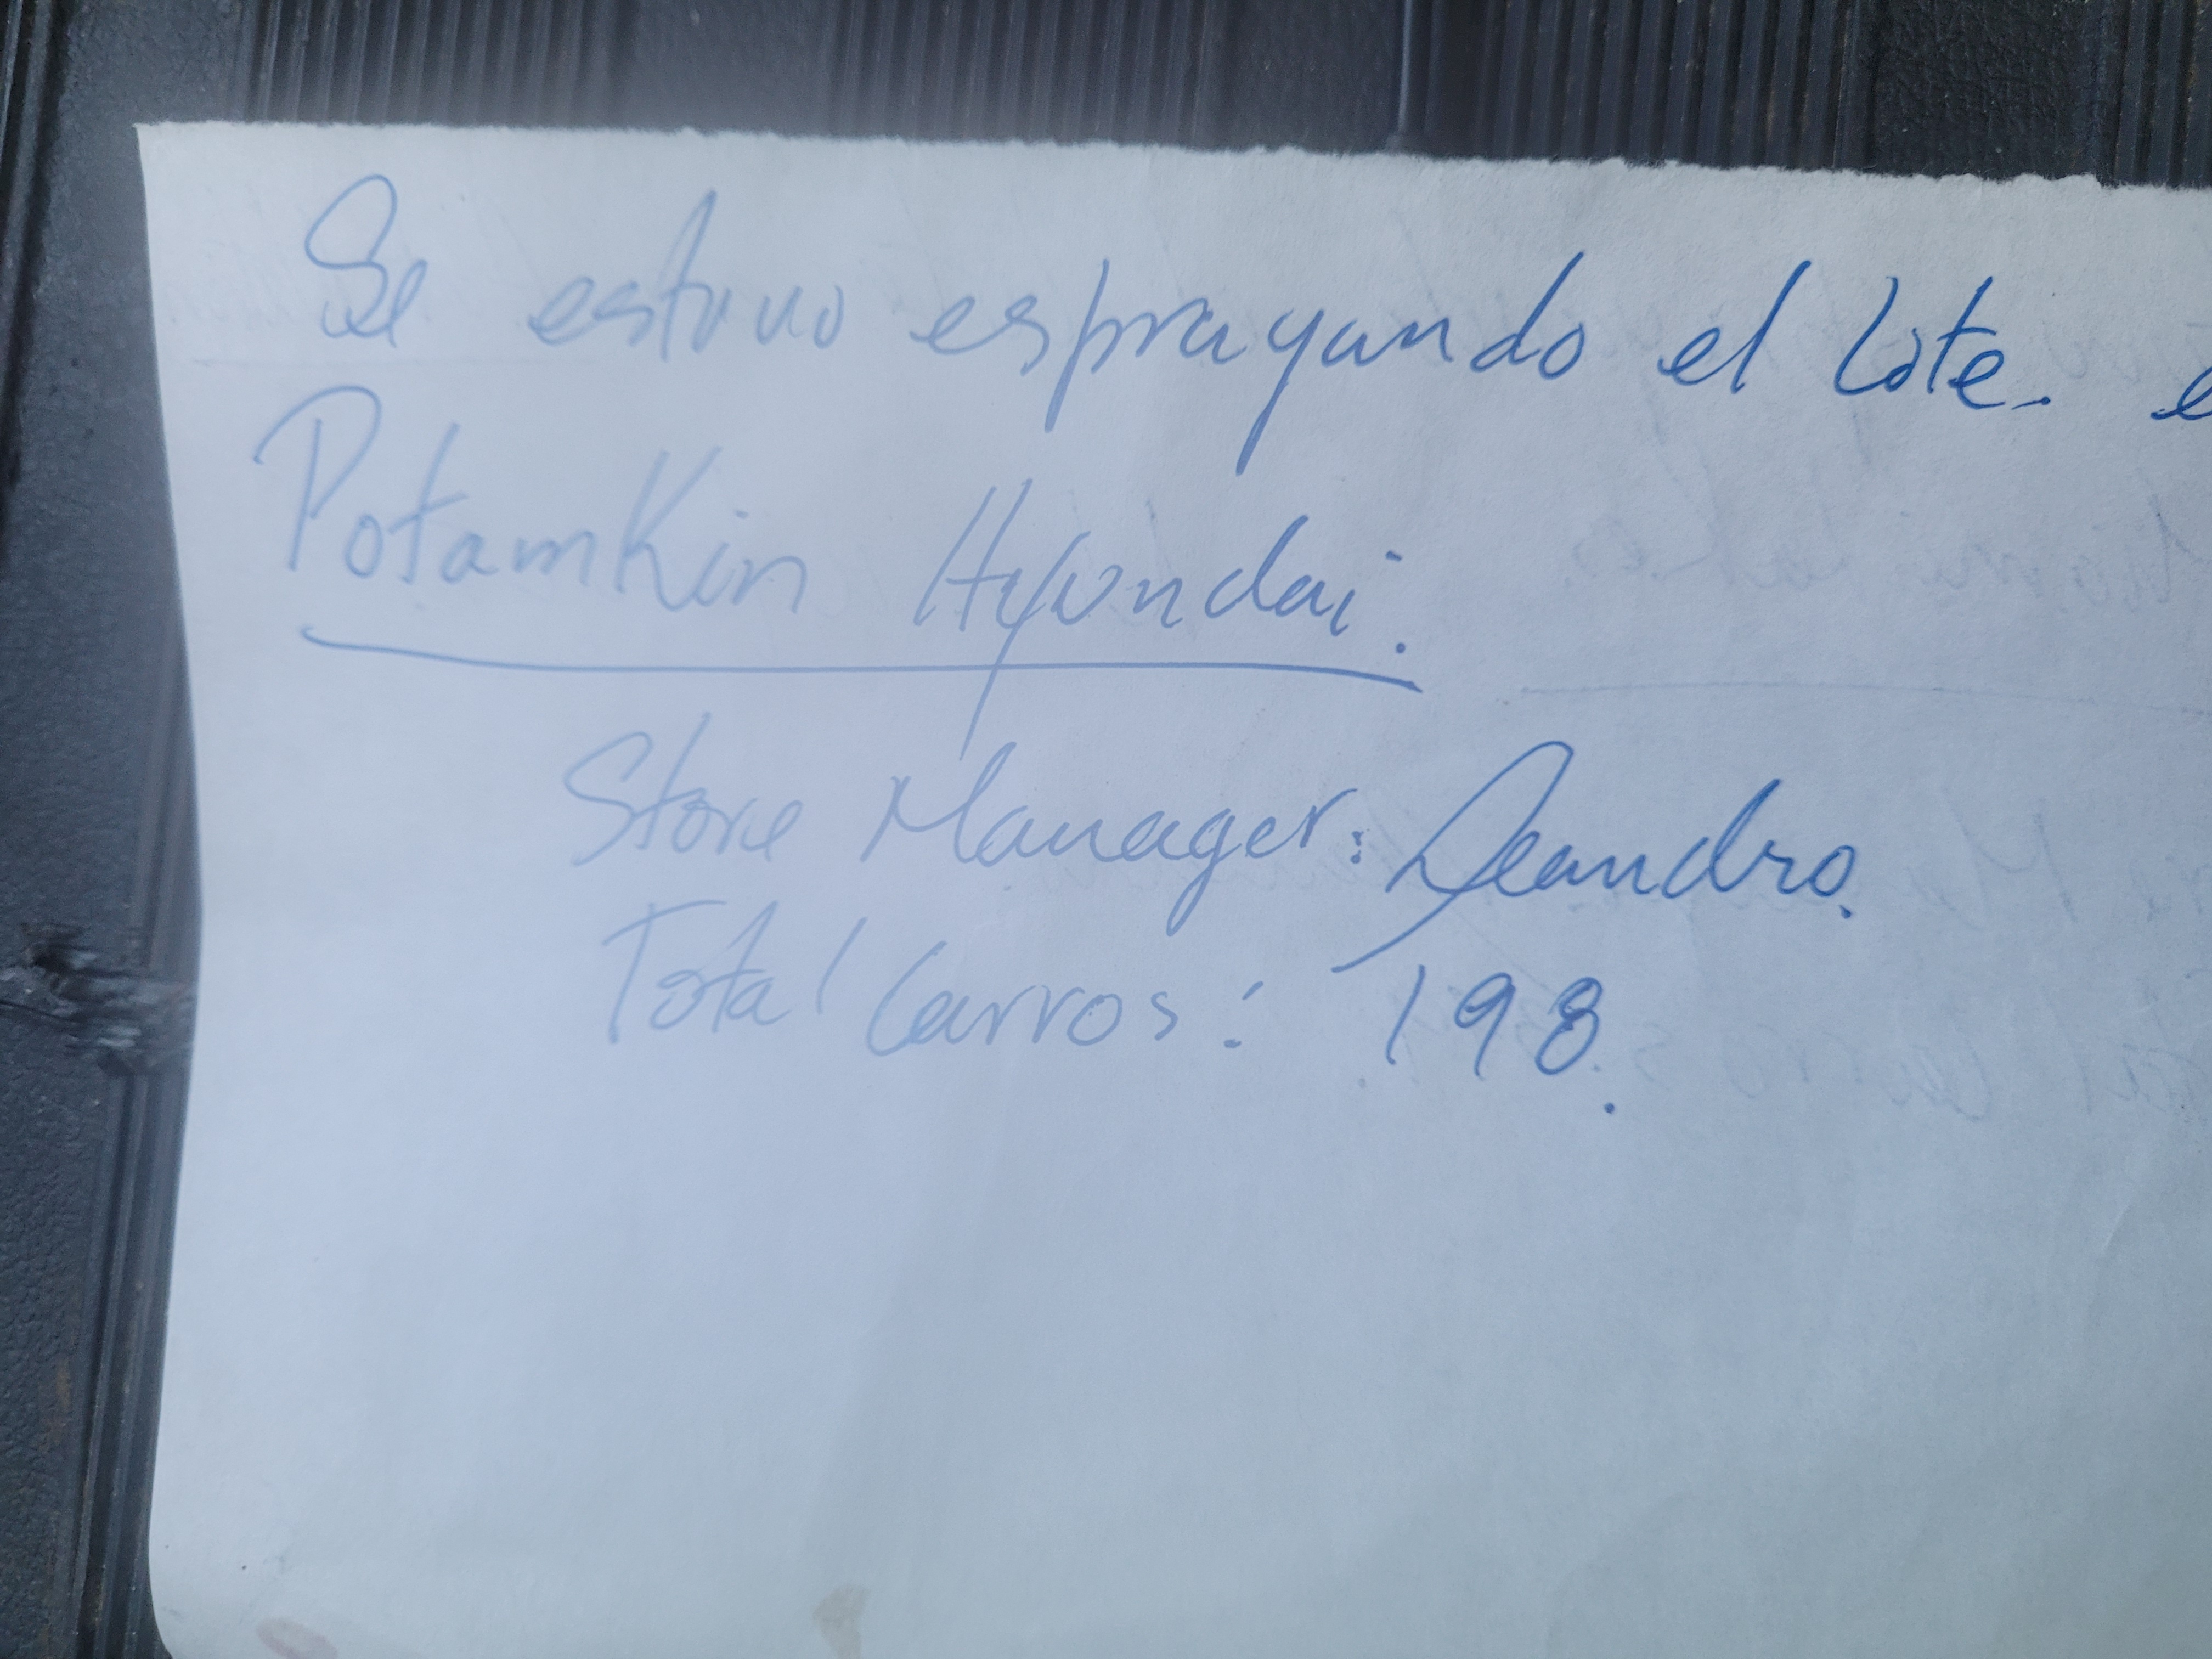 Se estuvo esprayando el Lote. e
Potamkin Hyundai.
Store Manager: Leandro.
Total Carros: 198.